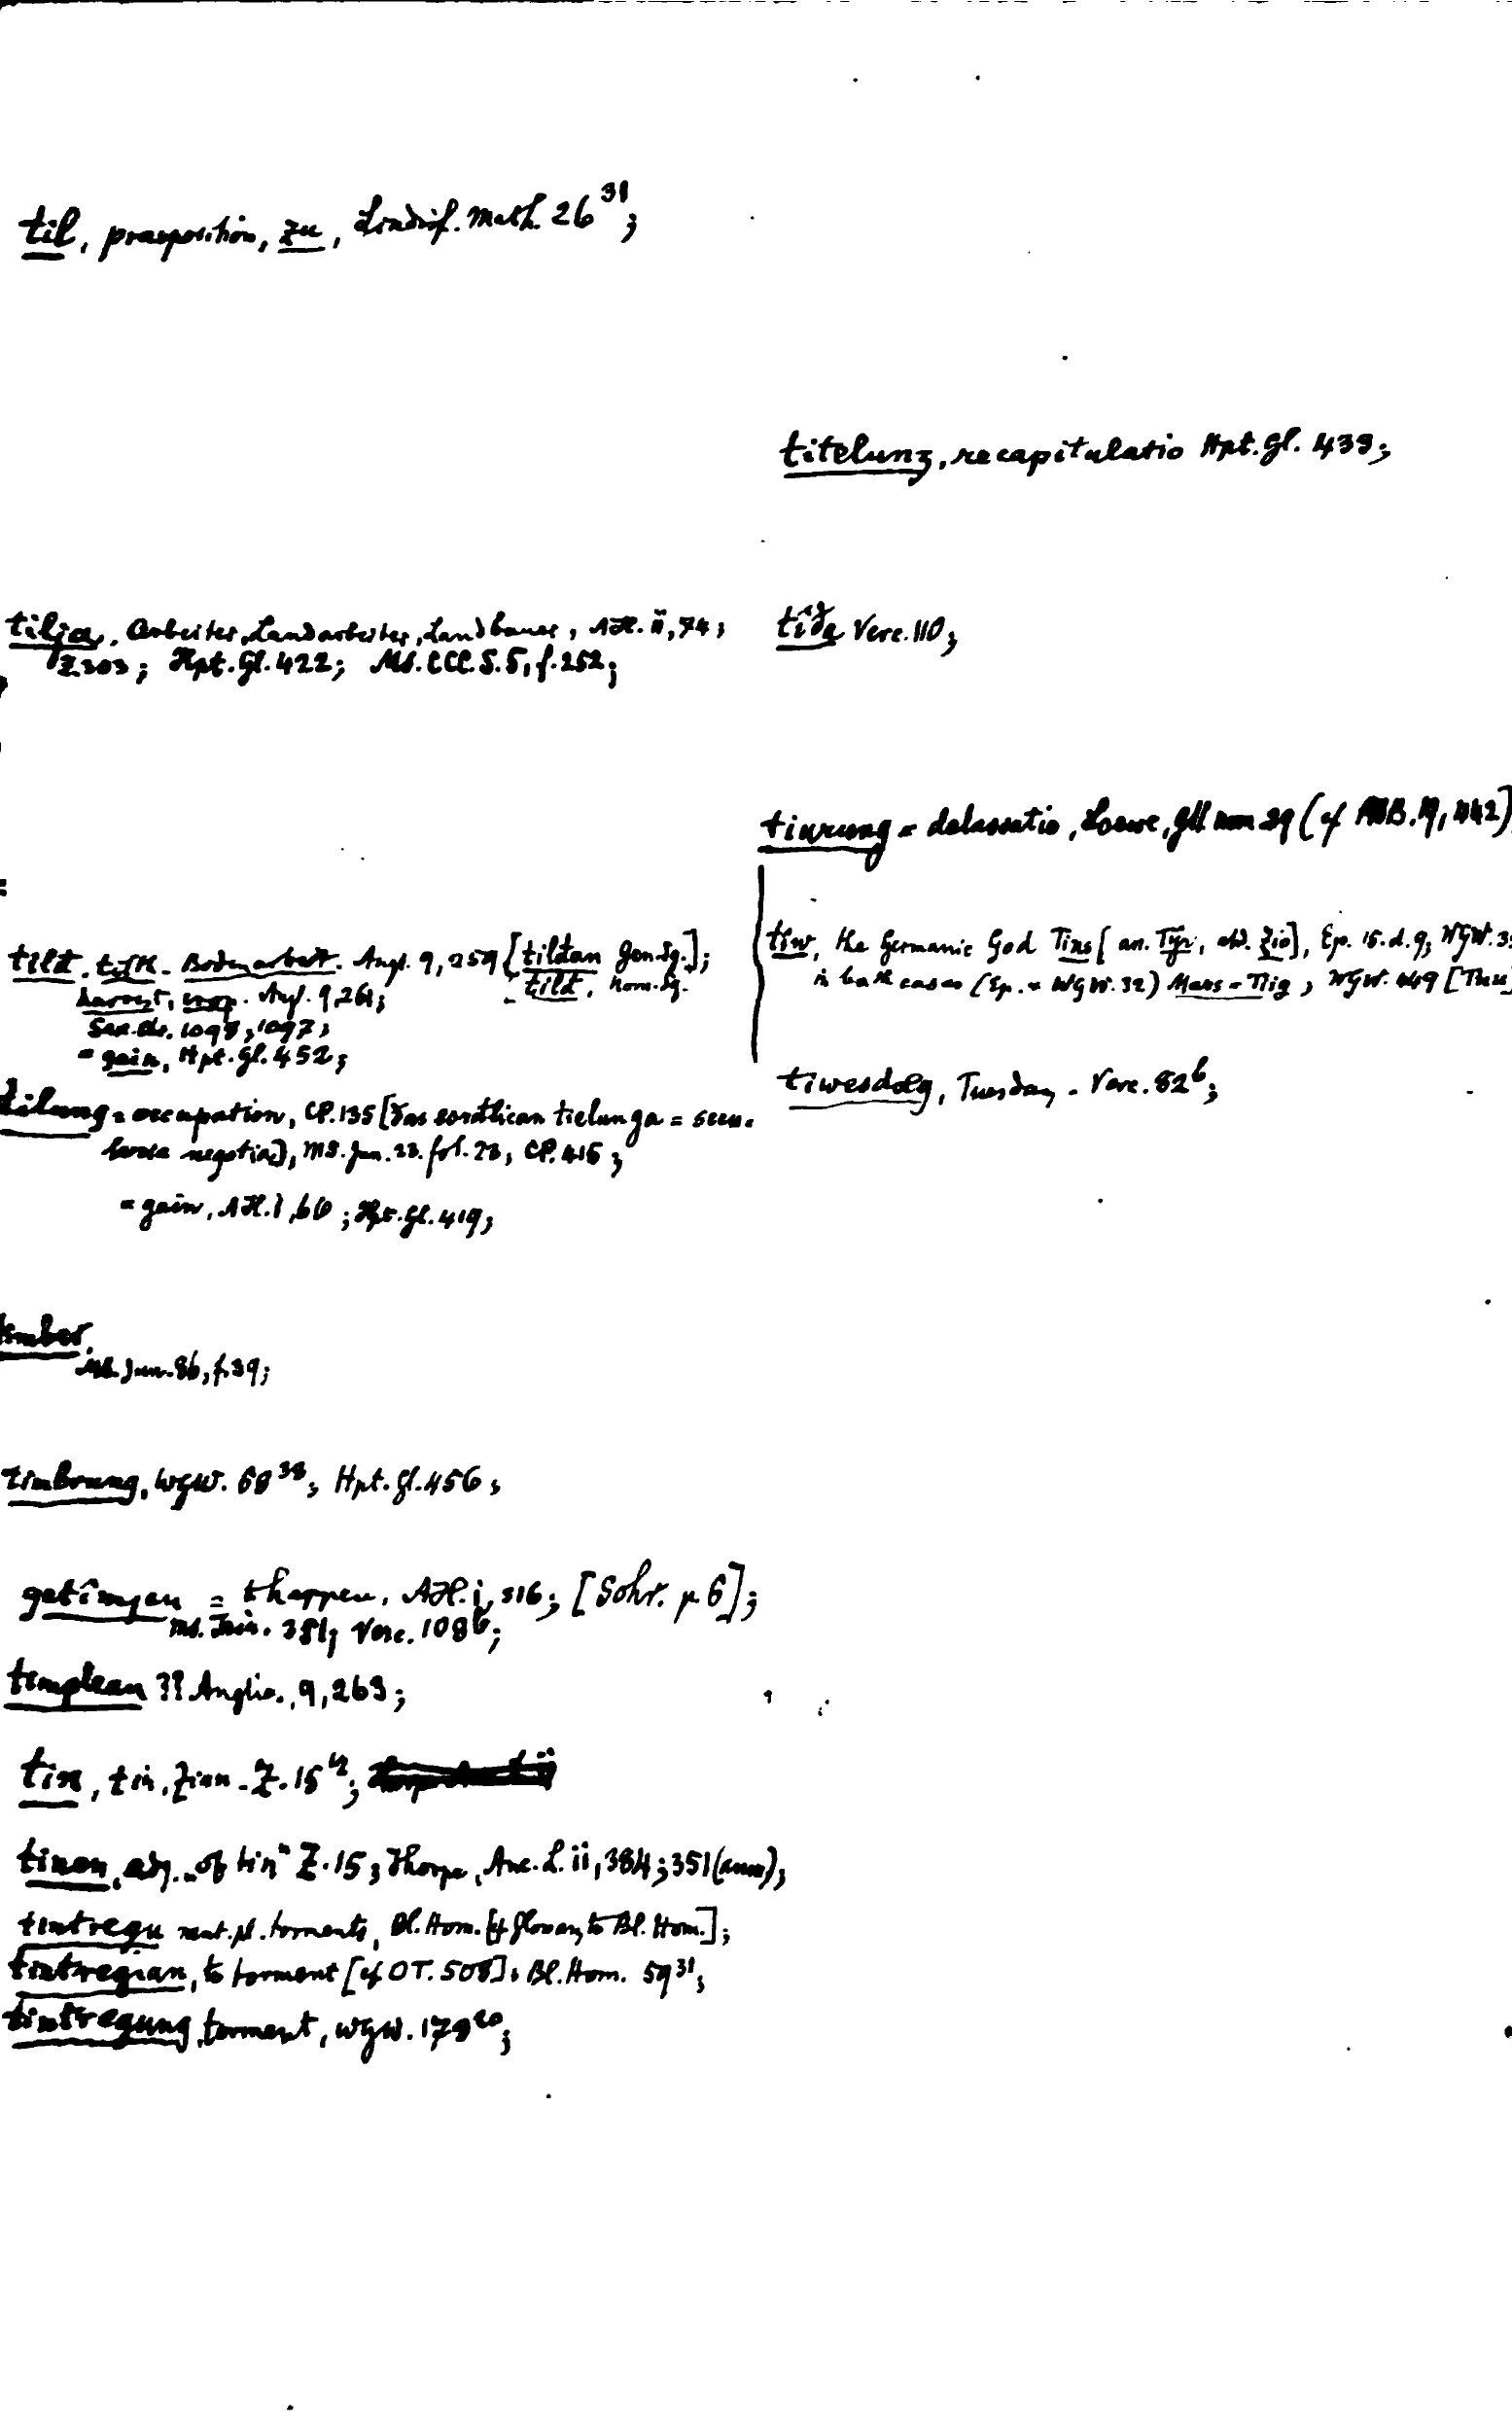 til, praeposition, zu, Lindisf. Math. 26 31;
tilia, Arbeiter, Landarbeiter, Landbauer, AH. ii, 74;
Z. 303; Hpt. Gl. 422; MS. CCC. S. 5, f. 252;
tilð, Bodenarbeit. Angl. 9, 259 [tilðan gen. Sg.];
tilð, nom. Sg.
harvest, crop. Angl. 9, 261;
Sax. Chr. 1098, 1097;
= gain, Hpt. Gl. 452;
tilung = occupation, CP. 135 [ðas eorðlican tielunga =
negotia], MS. Jun. 23. fol. 23, CP. 415;
= gain, AH. i, 60; Hpt. Gl. 419;
timber,
MS. Jun. 86, f. 39;
timbrung, WgW. Hpt. Gl. 456;
getîmian = to happen, AH. i, 316; [Sohr. p 6];
Verc. 108 b;
timplean ?? Anglia, 9, 263;
tin, tin, Zinn - Z. 15 12;
tinen, adj. „of tin" Z. 15; Thorpe, Anc. L. ii, 384; 351 (anm);
tintregu neut. pl. torments, Bl. Hom. [cf glossary to Bl. Hom.];
tintregian, to torment [cf OT. 508], Bl. Hom. 59 31;
tintregung, torment, WgW. 179 20;
titelung, recapitulatio Hpt. Gl. 439;
Verc. 110;
tiurung = delassatio, Loewe, Gll
tiw, the Germanic God [an. Tyr, ahd. Zio], Ep. 15. d. 9; WgW. 3
in both cases (Ep. + WgW. 32) Mars - Tiig, WgW. 449
tiwesdæg, Tuesday - Verc. 82 b;